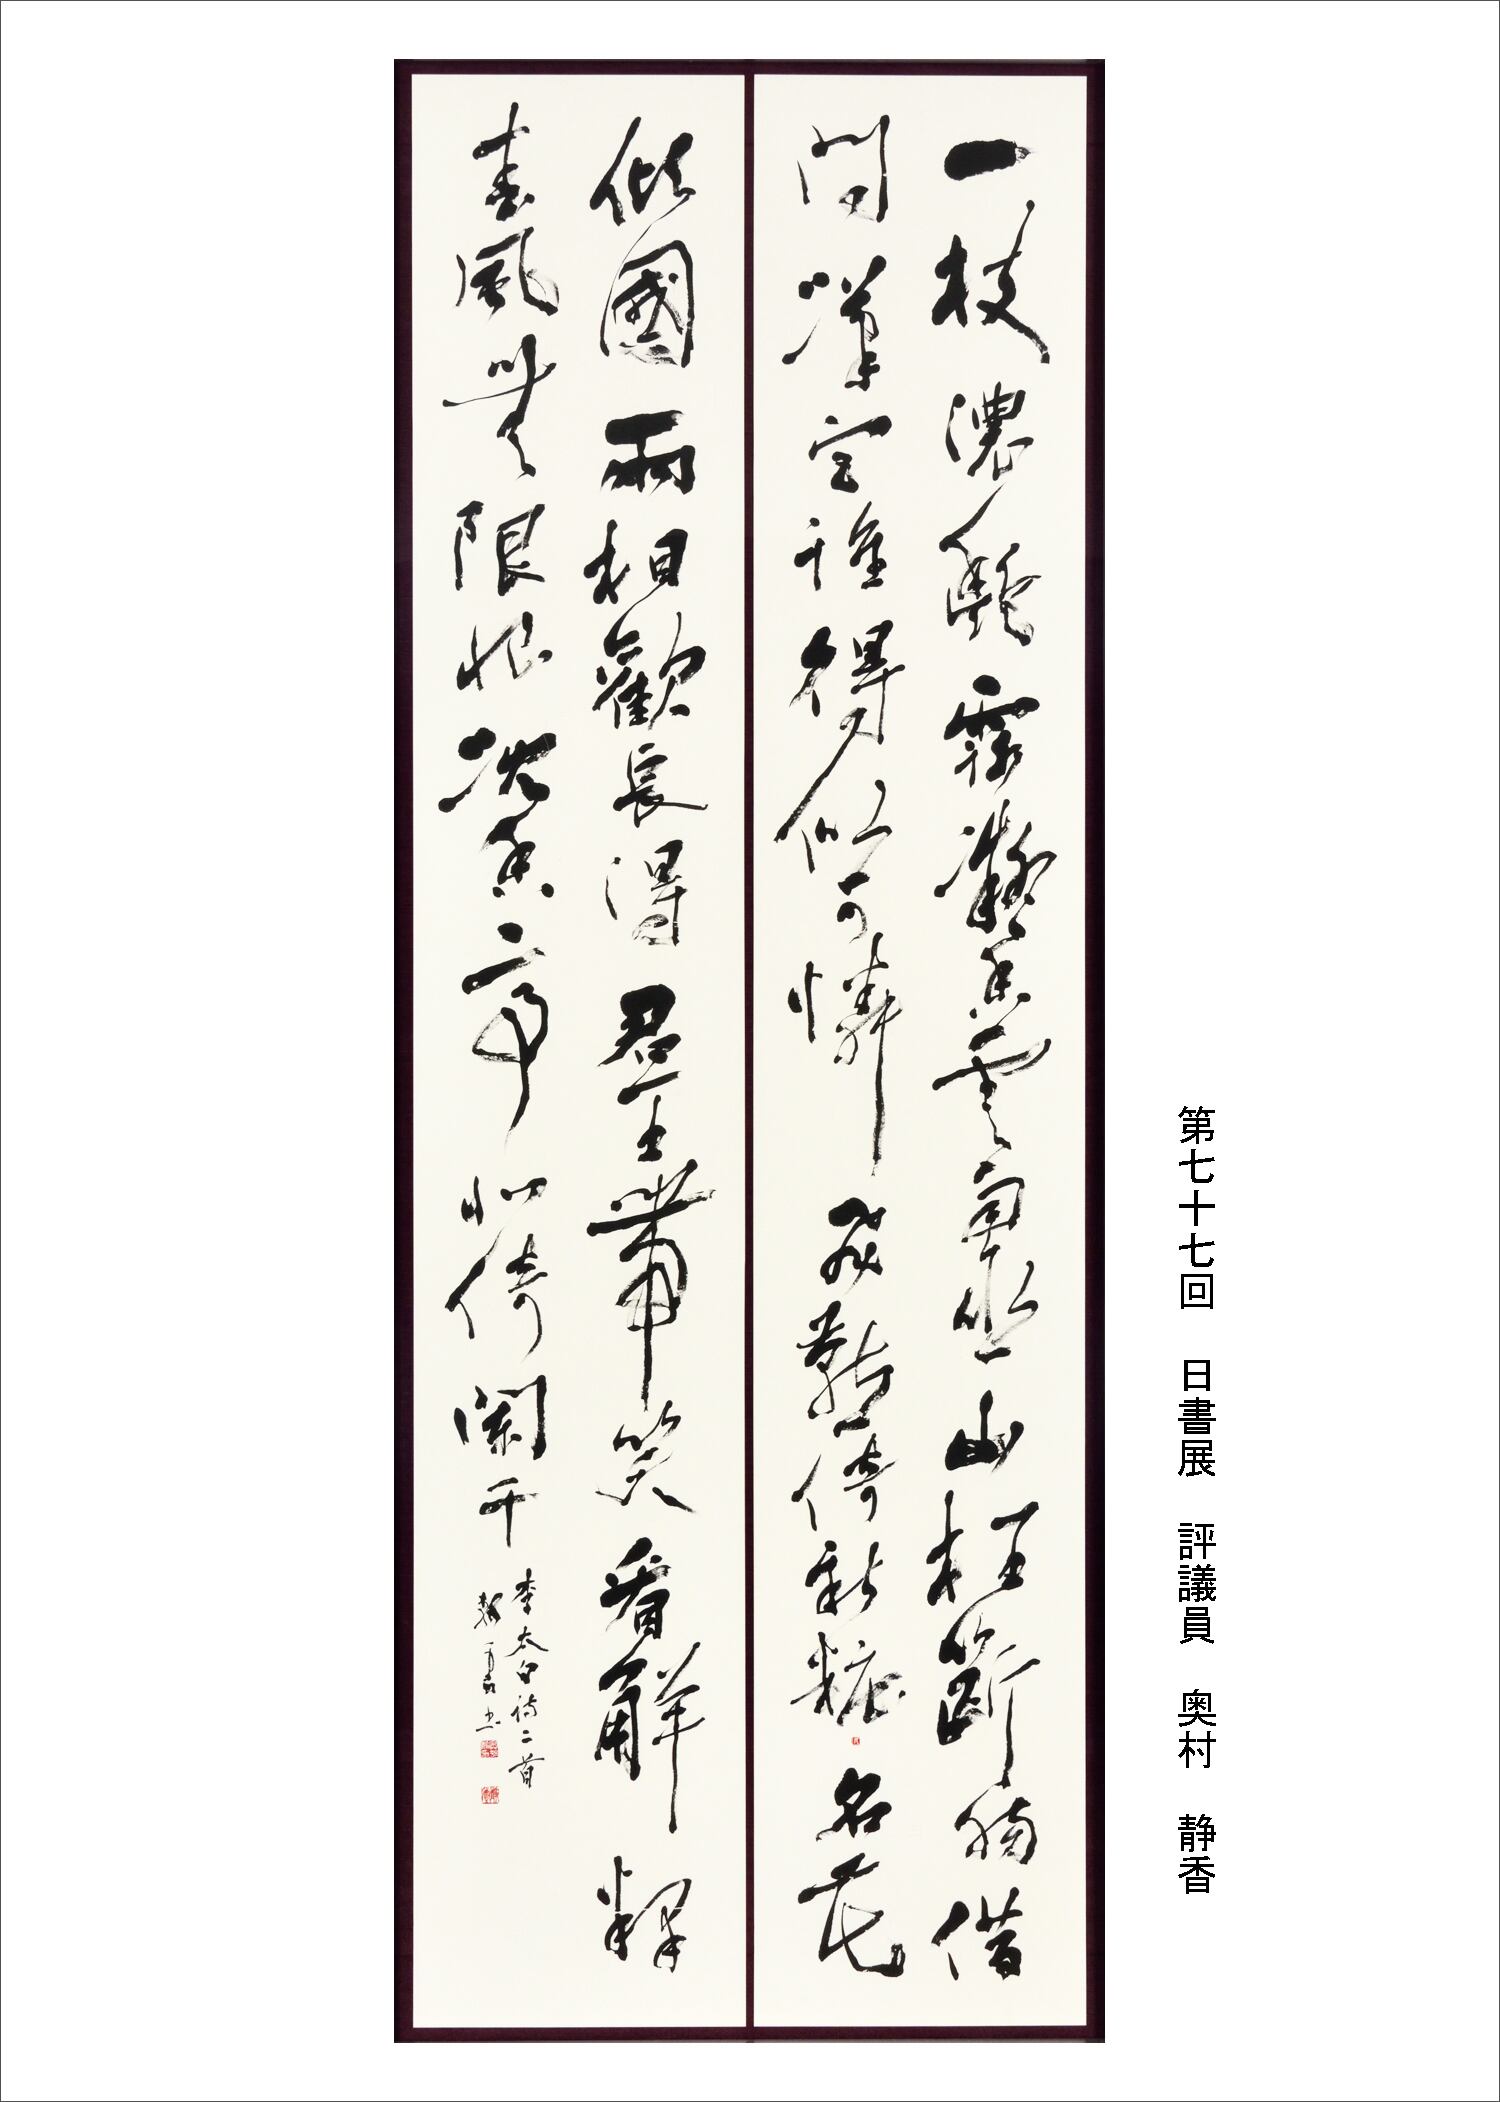 第七十七回　日書展　評議員　奥村　静香
一枝濃艷露凝香雲雨巫山枉斷腸借
問漢宮誰得似可憐飛燕倚新粧名花
傾國兩相歡長得君王帶笑看解釋
春風無限恨沈香亭北倚闌干
李太白詩二首